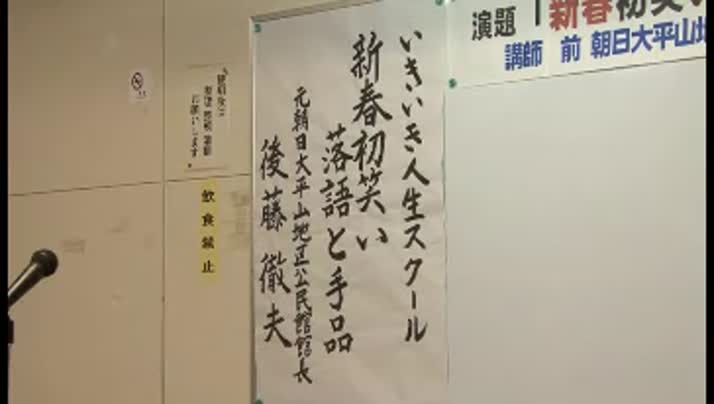 演題「新春初笑い
講師 前 朝日大平山地
いきいき人生スクール
新春初笑い
落語と手品
元朝日大平山地区公民館館長
後藤 徹夫
お願いします
飲食禁止